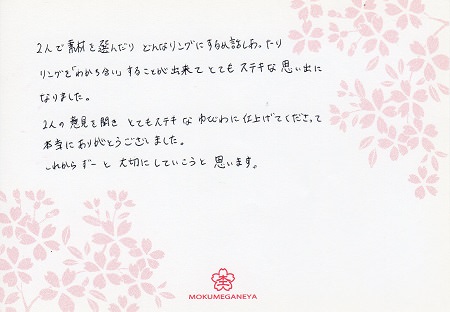 2人で素材を選んだり どんなリングにするか話しあったり
リングを「わかち合い」することが出来て とても ステキな 思い出に
なりました。
2人の意見を聞き とてもステキ な ゆびわに仕上げてくださって
本当に ありがとうございました。
これから ずーっと 大切にしていこうと 思います。
MOKUMEGANEYA